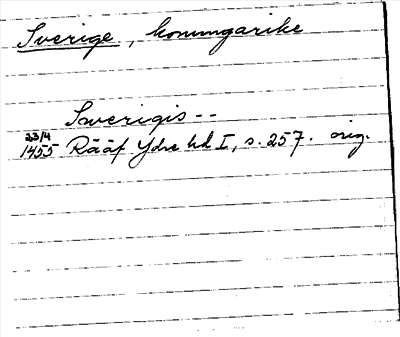 Sverige, konungarike
Swerigis --
23/4
1455 Rääf Ydre hd I, s. 257. orig.